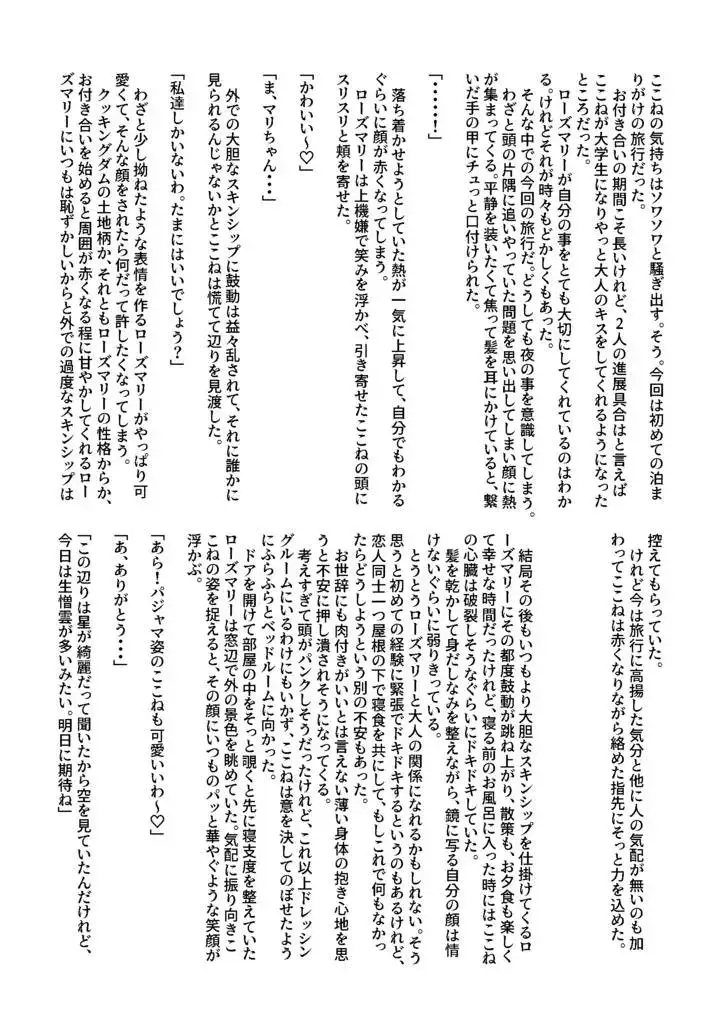 ここねの気持ちはソワソワと騒ぎ出す。そう。今回は初めての泊ま
りがけの旅行だった。
　お付き合いの期間こそ長いけれど、２人の進展具合はと言えば
ここねが大学生になりやっと大人のキスをしてくれるようになった
ところだった。
　ローズマリーが自分の事をとても大切にしてくれているのはわか
る。けれどそれが時々もどかしくもあった。
　そんな中での今回の旅行だ。どうしても夜の事を意識してしまう。
　わざと頭の片隅に追いやっていた問題を思い出してしまい顔に熱
が集まってくる。平静を装いたくて焦って髪を耳にかけていると、繋
いだ手の甲にチュっと口付けられた。
「・・・・・・！」
　落ち着かせようとしていた熱が一気に上昇して、自分でもわかる
ぐらいに顔が赤くなってしまう。
　ローズマリーは上機嫌で笑みを浮かべ、引き寄せたここねの頭に
スリスリと頬を寄せた。
「かわいい～♡」
「ま、マリちゃん・・・」
　外での大胆なスキンシップに鼓動は益々乱されて、それに誰かに
見られるんじゃないかとここねは慌てて辺りを見渡した。
「私達しかいないわ。たまにはいいでしょう？」
　わざと少し拗ねたような表情を作るローズマリーがやっぱり可
愛くて、そんな顔をされたら何だって許したくなってしまう。
　クッキングダムの土地柄か、それともローズマリーの性格からか、
お付き合いを始めると周囲が赤くなる程に甘やかしてくれるロー
ズマリーにいつもは恥ずかしいからと外での過度なスキンシップは
控えてもらっていた。
　けれど今は旅行に高揚した気分と他に人の気配が無いのも加
わってここねは赤くなりながら絡めた指先にそっと力を込めた。
　結局その後もいつもより大胆なスキンシップを仕掛けてくるロ
ーズマリーにその都度鼓動が跳ね上がり、散策も、お夕食も楽しく
て幸せな時間だったけれど、寝る前のお風呂に入った時にはここね
の心臓は破裂しそうなぐらいにドキドキしていた。
　髪を乾かして身だしなみを整えながら、鏡に写る自分の顔は情
けないぐらいに弱りきっている。
　とうとうローズマリーと大人の関係になれるかもしれない。そう
思うと初めての経験に緊張でドキドキするというのもあるけれど、
恋人同士一つ屋根の下で寝食を共にして、もしこれで何もなかっ
たらどうしようという別の不安もあった。
　お世辞にも肉付きがいいとは言えない薄い身体の抱き心地を思
うと不安に押し潰されそうになってくる。
　考えすぎて頭がパンクしそうだったけれど、これ以上ドレッシン
グルームにいるわけにもいかず、ここねは意を決してのぼせたよう
にふらふらとベッドルームに向かった。
　ドアを開けて部屋の中をそっと覗くと先に寝支度を整えていた
ローズマリーは窓辺で外の景色を眺めていた。気配に振り向きこ
こねの姿を捉えると、その顔にいつものパッと華やぐような笑顔が
浮かぶ。
「あら！パジャマ姿のここねも可愛いいわ～♡」
「あ、ありがとう・・・」
「この辺りは星が綺麗だって聞いたから空を見ていたんだけれど、
今日は生憎雲が多いみたい。明日に期待ね」